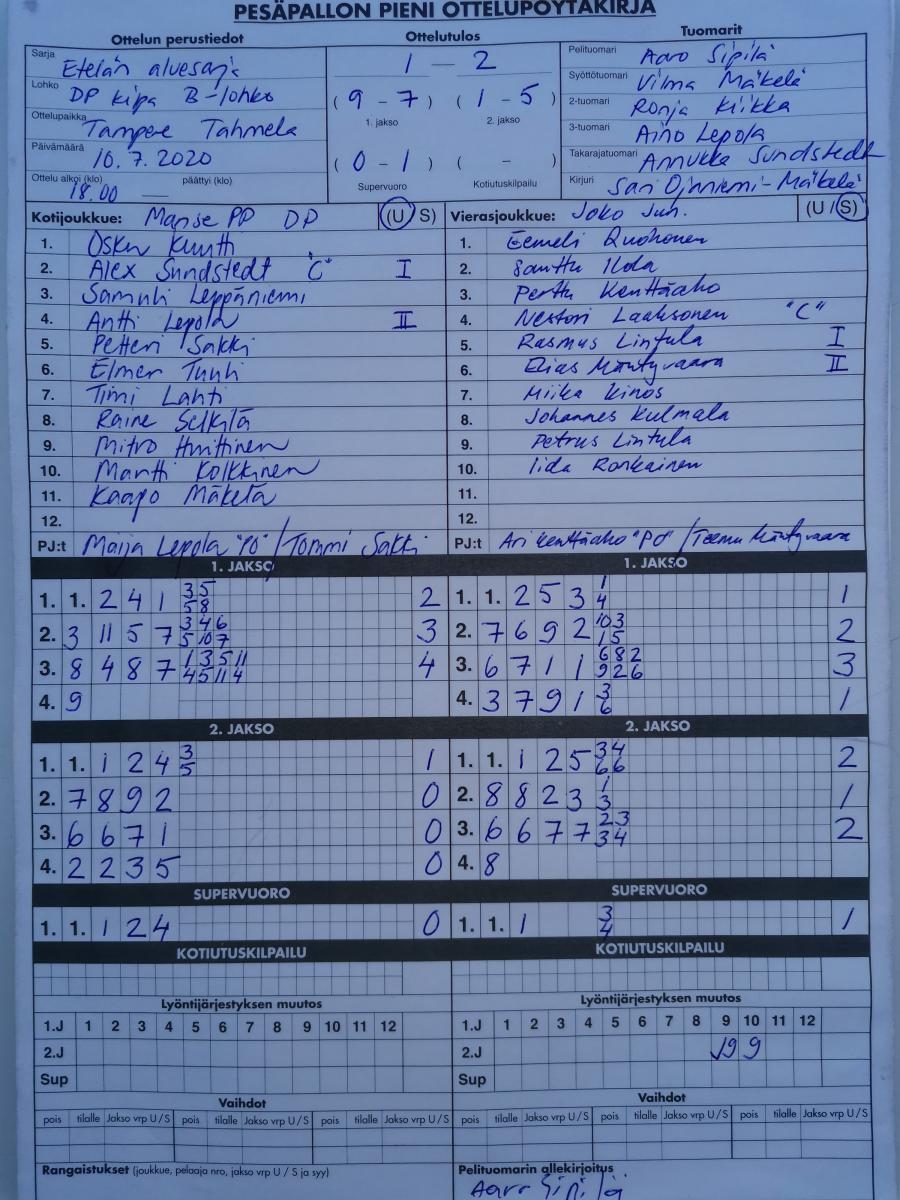 PESÄPALLON PIENI OTTELUPÖYTÄKIRJA
Ottelun perustiedot
Sarja Etelän aluesarja
Lohko DP kilpa B-lohko
Ottelupaikka Tampere Tahmela
Päivämäärä 10.7.2020
Ottelu alkoi (klo) 18.00 — päättyi (klo)
Ottelutulos
1 — 2
( 9 - 7 ) ( 1 - 5 )
1. jakso 2. jakso
( 0 - 1 ) ( - )
Supervuoro Kotiutuskilpailu
Tuomarit
Pelituomari Aaro Sipilä
Syöttötuomari Vilma Mäkelä
2-tuomari Ronja Kiikka
3-tuomari Aino Lepola
Takarajatuomari Annukka Sundstedt
Kirjuri Sari Ojaniemi-Mäkelä
Kotijoukkue: Manse PP DP (U / S)
1. Oskri Kuutti
2. Alex Sundstedt "C" I
3. Samuli Leppäniemi
4. Antti Lepola II
5. Petteri Sakki
6. Elmer Tuuli
7. Timi Lahti
8. Raine Selkilä
9. Mitro Huittinen
10. Martti Kolkkinen
11. Kaapo Mäkelä
12.
PJ:t Maija Lepola "PO" / Tommi Sakki
Vierasjoukkue: Joko Juh. (U / S)
1. Eemeli Ruohonen
2. Santtu Ilola
3. Perttu Kenttäaho
4. Nestori Laaksonen "C"
5. Rasmus Lintula I
6. Elias Mäntyvaara II
7. Miika Kinos
8. Johannes Kulmala
9. Petrus Lintula
10. Iida Ronkainen
11.
12.
PJ:t Ari Kenttäaho "PO" / Teemu Mäntyvaara
1. JAKSO
1. 1. 2 4 1 3 5 2
5 8
2. 3 11 5 7 3 4 6 3
5 10 7
3. 8 4 8 7 1 3 5 11 4
4 5 11 4
4. 9
1. JAKSO
1. 1. 2 5 3 1 1
4
2. 7 6 9 2 10 3 2
1 5
3. 6 7 1 1 6 8 2 3
9 2 6
4. 3 7 9 1 3 1
6
2. JAKSO
1. 1. 1 2 4 3 1
5
2. 7 8 9 2 0
3. 6 6 7 1 0
4. 2 2 3 5 0
2. JAKSO
1. 1. 1 2 5 3 4 2
6 6
2. 8 8 2 3 1 1
3
3. 6 6 7 7 2 3 2
3 4
4. 8
SUPERVUORO
1. 1. 1 2 4 0
SUPERVUORO
1. 1. 1 3 1
4
KOTIUTUSKILPAILU
KOTIUTUSKILPAILU
Lyöntijärjestyksen muutos
1.J 1 2 3 4 5 6 7 8 9 10 11 12
2.J
Sup
Lyöntijärjestyksen muutos
1.J 1 2 3 4 5 6 7 8 9 10 11 12
2.J 9 9
Sup
Vaihdot
pois tilalle Jakso vrp U / S pois tilalle Jakso vrp U / S pois tilalle Jakso vrp U / S
Vaihdot
pois tilalle Jakso vrp U / S pois tilalle Jakso vrp U / S pois tilalle Jakso vrp U / S
Rangaistukset (joukkue, pelaaja nro, jakso vrp U / S ja syy)
Pelituomarin allekirjoitus
Aaro Sipilä